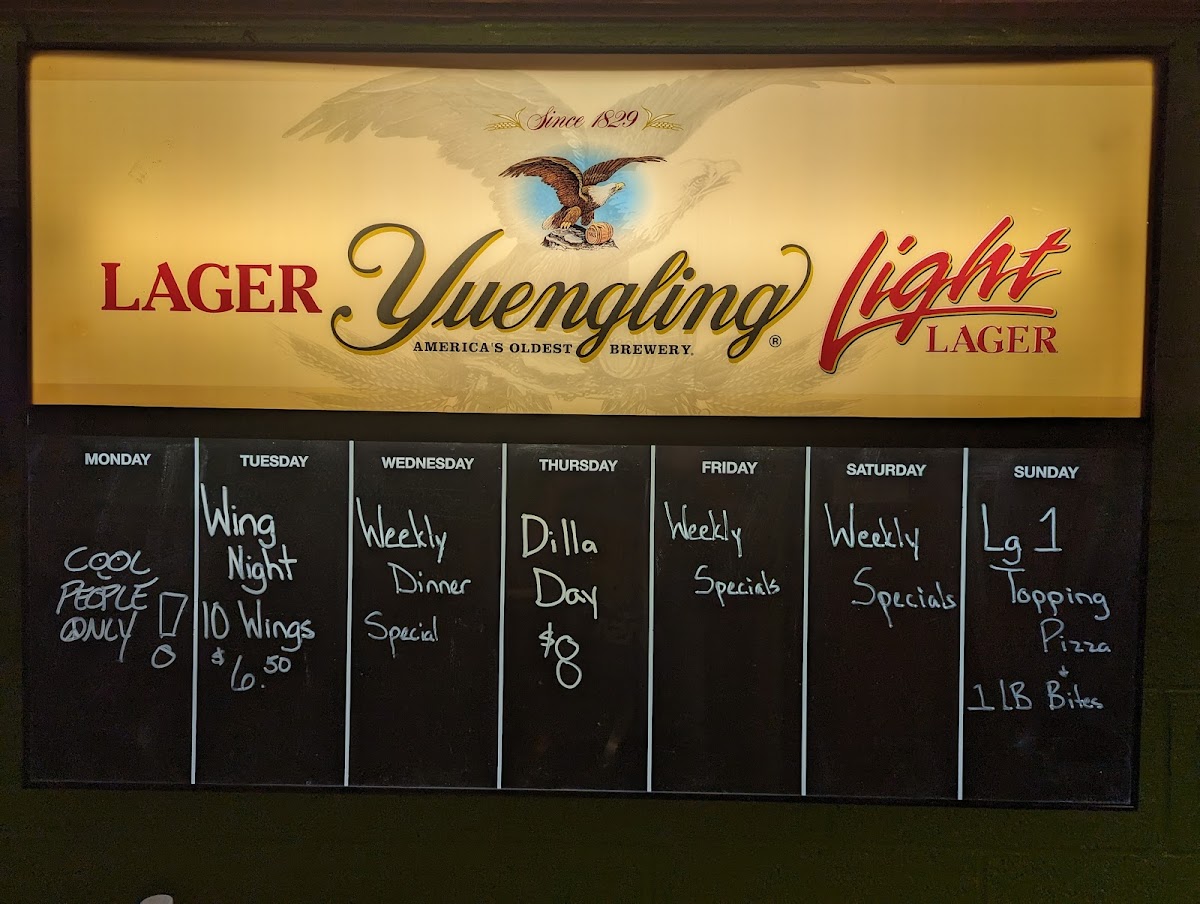 Since 1829
LAGER
Yuengling®
AMERICA'S OLDEST BREWERY.
Light
LAGER
MONDAY
COOL
PEOPLE
ONLY !
TUESDAY
Wing
Night
10 Wings
$6.50
WEDNESDAY
Weekly
Dinner
Special
THURSDAY
Dilla
Day
$8
FRIDAY
Weekly
Specials
SATURDAY
Weekly
Specials
SUNDAY
Lg 1
Topping
Pizza
+
1 LB Bites